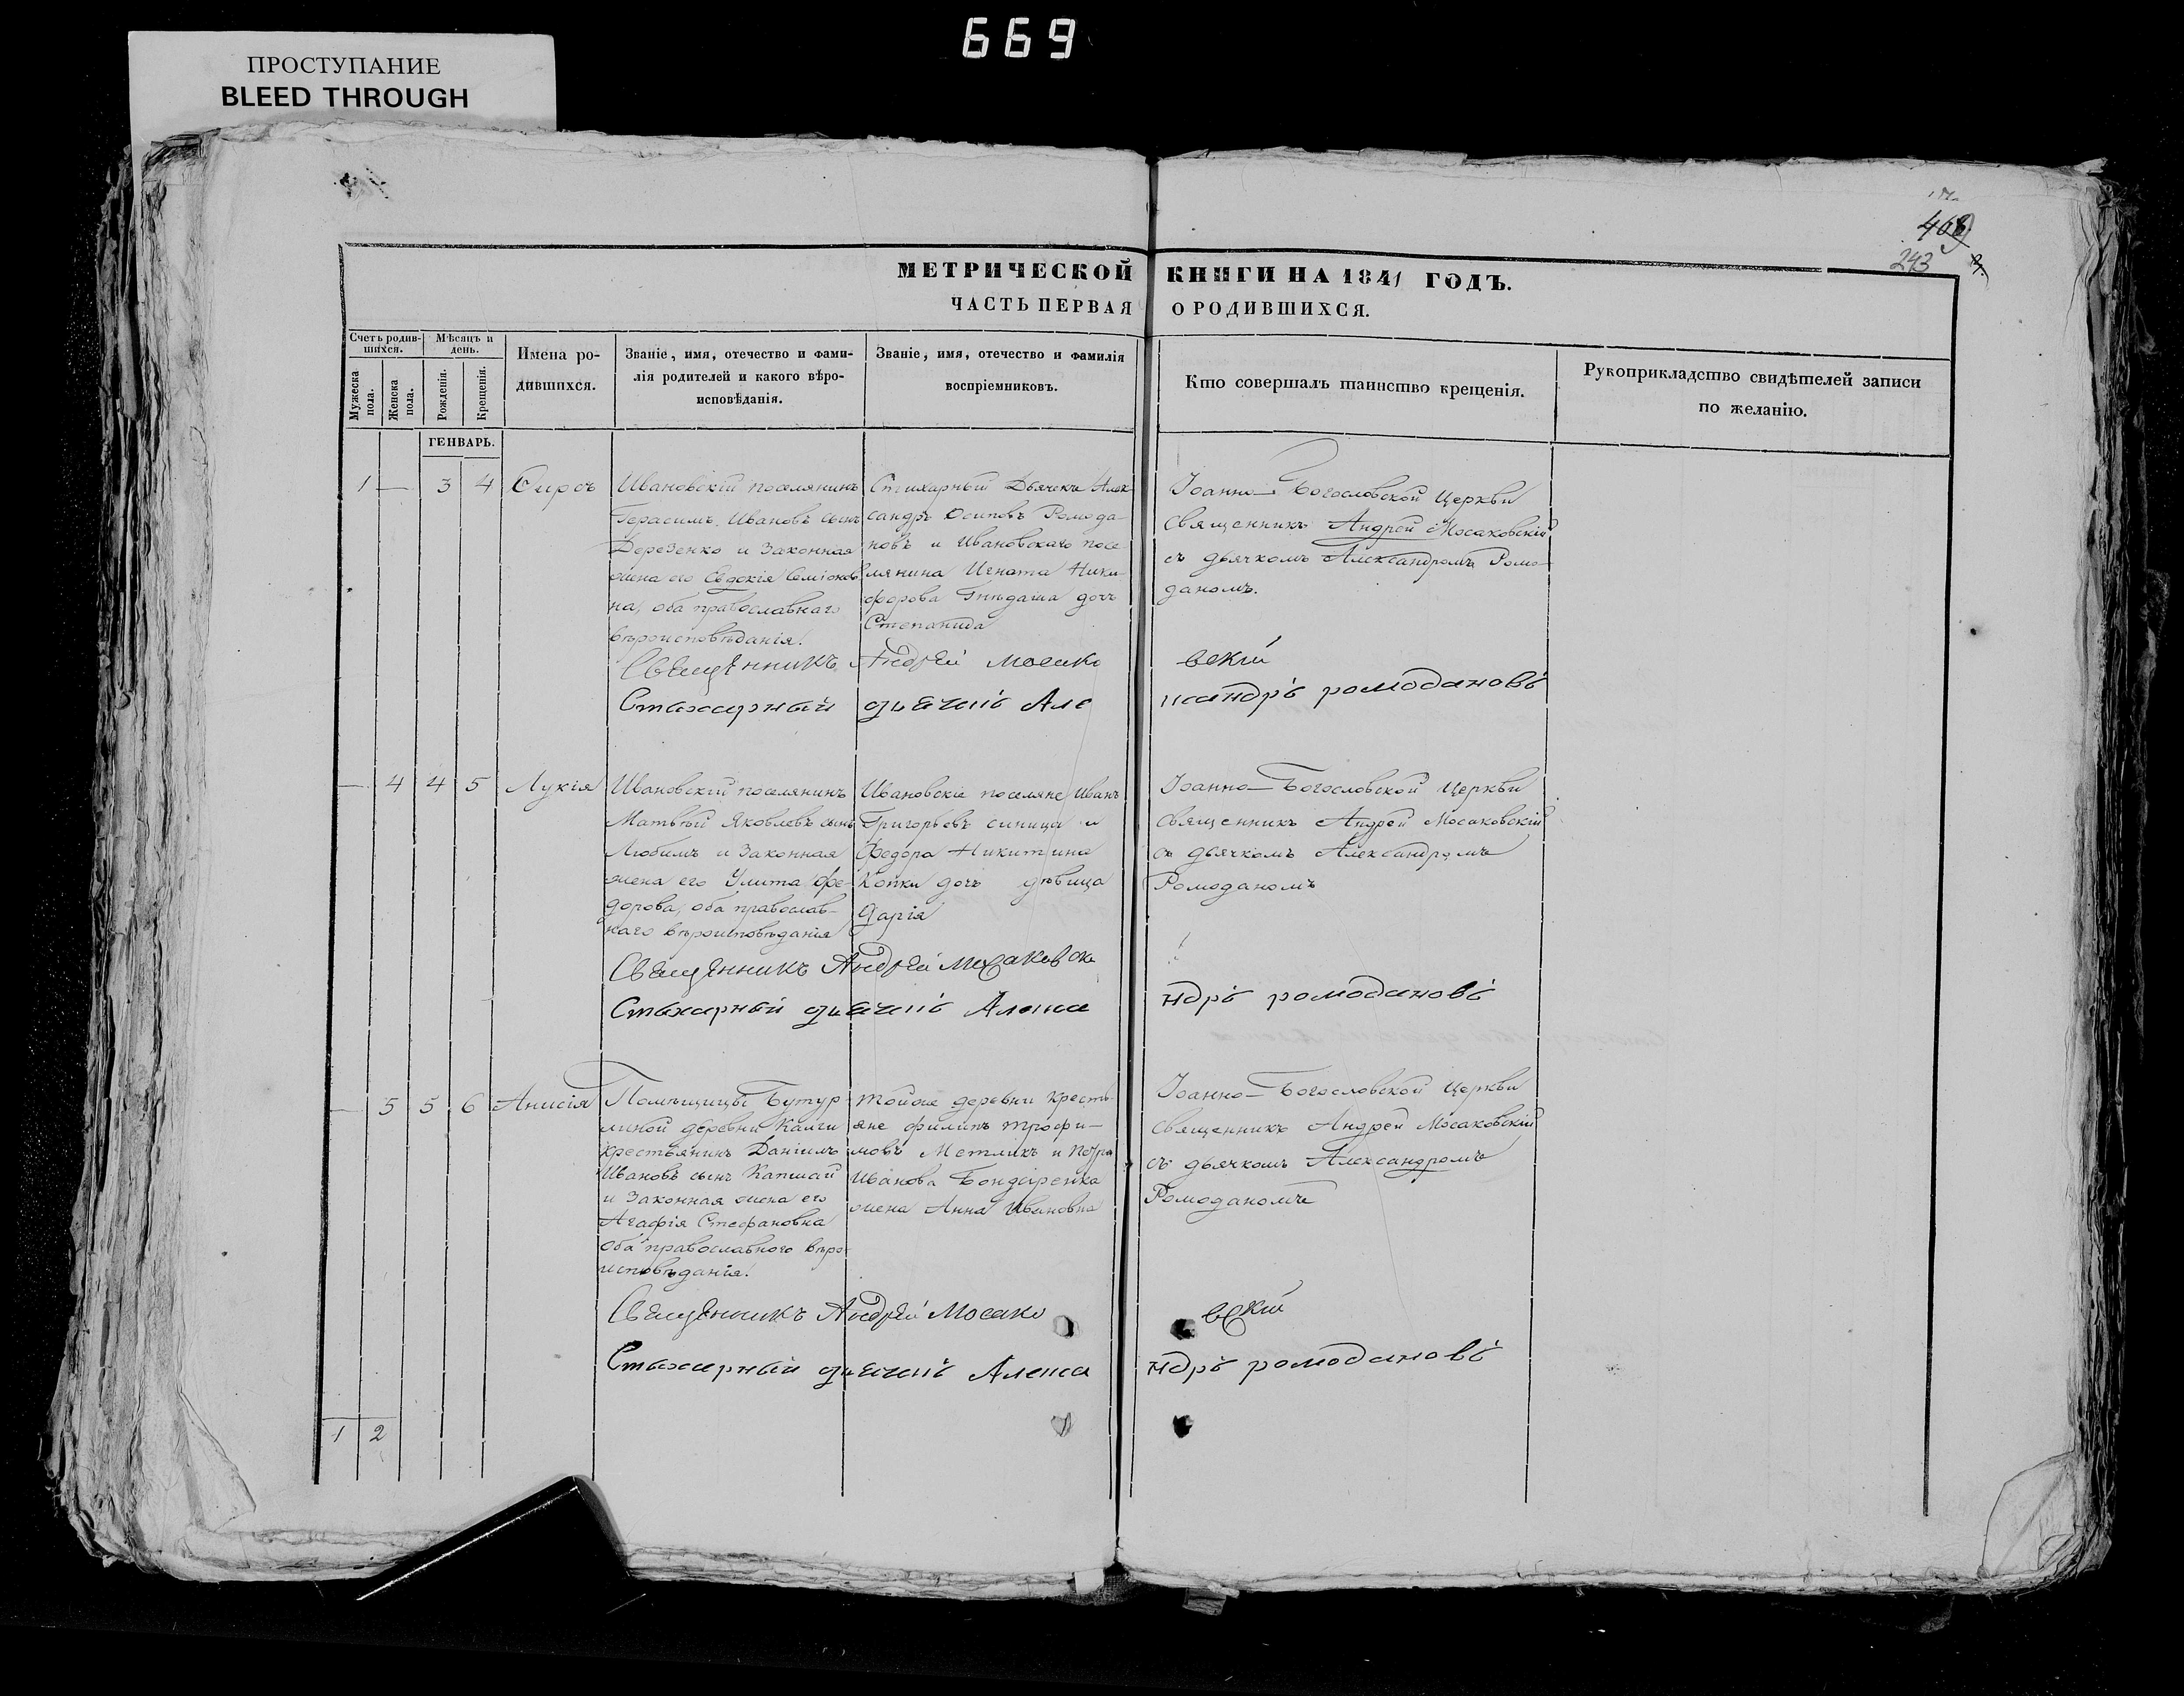 669
ПРОСТУПАНИЕ
BLEED THROUGH
468
243
МЕТРИЧЕСКОЙ КНИГИ НА 1841 ГОДЪ.
ЧАСТЬ ПЕРВАЯ О РОДИВШИХСЯ.
Счетъ родив-
шихся.
Мужеска
пола.
Женска
пола.
Мѣсяцъ и
день.
Рожденія.
Крещенія.
Имена ро-
дившихся.
Званіе, имя, отечество и фами-
лія родителей и какого вѣро-
исповѣданія.
Званіе, имя, отечество и фамилія
воспріемниковъ.
Кто совершалъ таинство крещенія.
Рукоприкладство свидѣтелей записи
по желанію.
ГЕНВАРЬ.
1 — 3 4
Ивановскій поселянинъ
Герасимъ Ивановъ сынъ
Дерезенко и законная
жена его Евдокія Семіонов
на, оба православнаго
вѣроисповѣданія.
Стихарный Дьячекъ Алек
сандръ Осиповъ Ромода
новъ и Ивановскаго посе
лянина Игната Ники
форова Гнѣдаша дочь
Степанида
Іоанно-Богословской Церкви
священникъ Андрей Мосаковскій
съ дьячкомъ Александромъ Ромо-
даномъ.
Священникъ Андрей Мосако вскій
Стихарный дьячекъ Александръ ромодановъ
— 4 4 5 Лукія
Ивановскій поселянинъ
Матвѣй Яковлевъ сынъ
Любимъ и законная
жена его Улита Фе-
дорова, оба православ-
наго вѣроисповѣданія
Ивановскіе поселяне Иванъ
Григорьевъ синица и
Федора Никитина
Копки дочь дѣвица
Дарія
Іоанно-Богословской Церкви
священникъ Андрей Мосаковскій
съ дьячкомъ Александромъ
Ромоданомъ
Священникъ Андрей Мосаковск
Стихарный дьячекъ Алекса ндръ ромодановъ
— 5 5 6 Анисія
Помѣщицы Бутур
линой деревни
крестьянинъ Даніилъ
Ивановъ сынъ Капшай
и законная жена его
Агафія Стефановна
оба православного вѣро-
исповѣданія.
тойже деревни кресть-
яне филипъ трофи-
мовъ Метликъ и Петра
Иванова Бондаренка
жена Анна Ивановна
Іоанно-Богословской Церкви
священникъ Андрей Мосаковскій
съ дьячкомъ Александромъ
Ромоданомъ
Священникъ Андрей Мосако вскій
Стихарный дьячекъ Алекса ндръ ромодановъ
1 2